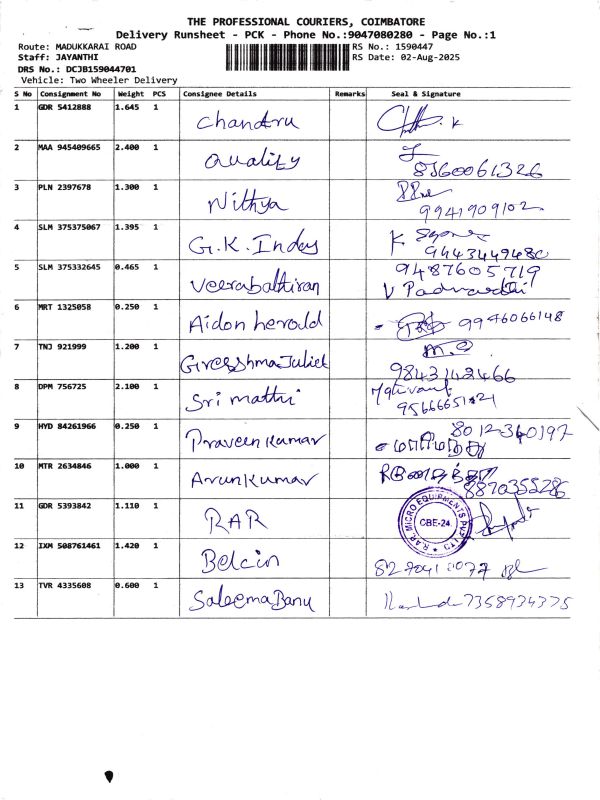 THE PROFESSIONAL COURIERS, COIMBATORE
Delivery Runsheet - PCK - Phone No.:9047080280 - Page No.:1
Route: MADUKKARAI ROAD RS No.: 1590447
Staff: JAYANTHI RS Date: 02-Aug-2025
DRS No.: DCJB159044701
Vehicle: Two Wheeler Delivery
S No Consignment No Weight PCS Consignee Details Remarks Seal & Signature
1 GDR 5412888 1.645 1 Chandru
2 MAA 945409665 2.400 1 Quality 8360061326
3 PLN 2397678 1.300 1 Nithya 9941909102
4 SLM 375375067 1.395 1 G.K. Indey 9443449480
5 SLM 375332645 0.465 1 Veerabathiran 9487605719
6 MRT 1325058 0.250 1 Aidon herould 9946066148
7 TNJ 921999 1.200 1 GreeshmaJuliet 9843142466
8 DPM 756725 2.100 1 Sri mathi
9 HYD 84261966 0.250 1 Praveen Kumar 8012340197
10 MTR 2634846 1.000 1 Arun Kumar 8870355286
11 GDR 5393842 1.110 1 RAR R.A.R. MICRO EQUIPMENTS PVT LTD CBE-24.
12 IXM 508761461 1.420 1 Belcin
13 TVR 4335608 0.600 1 Saleema Banu 7358934375